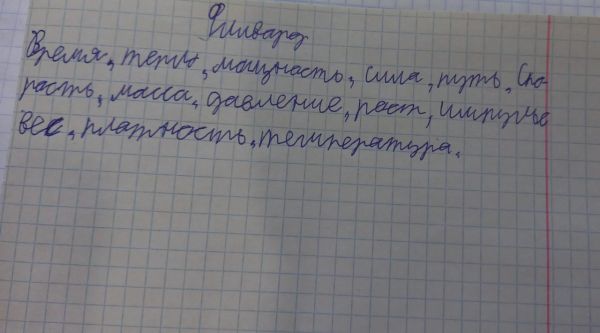 Филворд
Время, тепло, мощность, сила, путь, Ско-
расть, масса, давление, раст, импульс
вес, платность, температура.